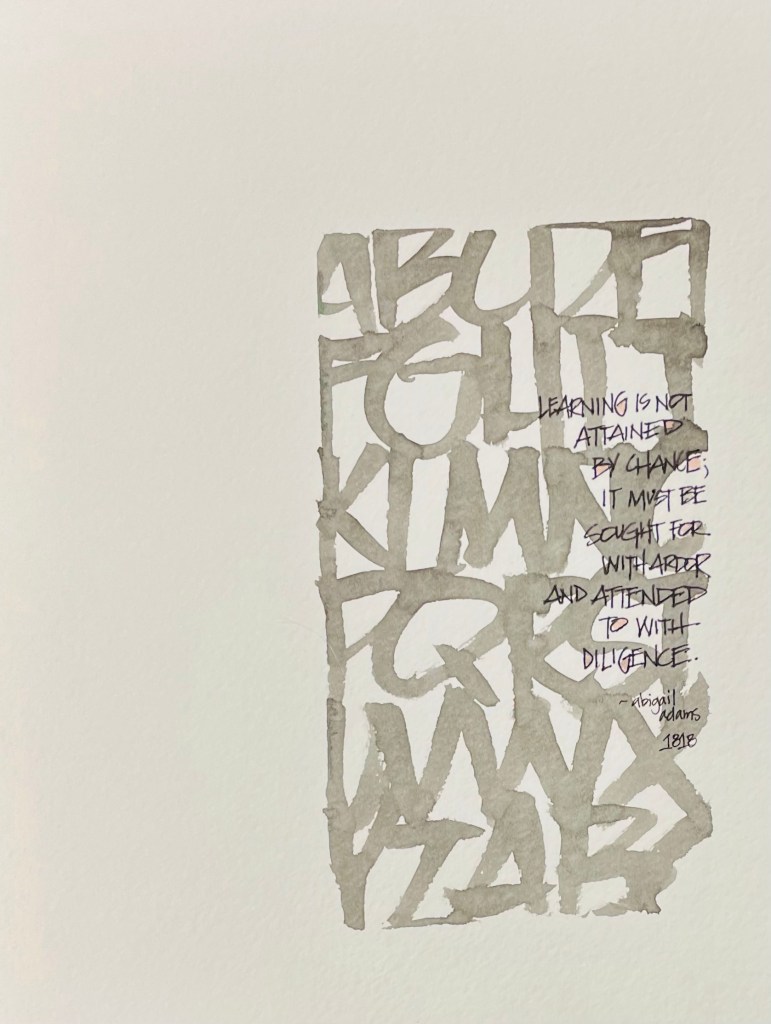 ABCDE
FGHIJ
KLMNO
PQRST
UVWX
YZAB
LEARNING IS NOT
ATTAINED
BY CHANCE;
IT MUST BE
SOUGHT FOR
WITH ARDOR
AND ATTENDED
TO WITH
DILIGENCE.
~abigail
adams
1818